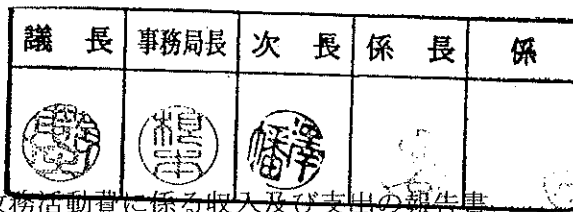 議長 事務局長 次長 係長 係
務活動費に係る収入及び支出の報告書